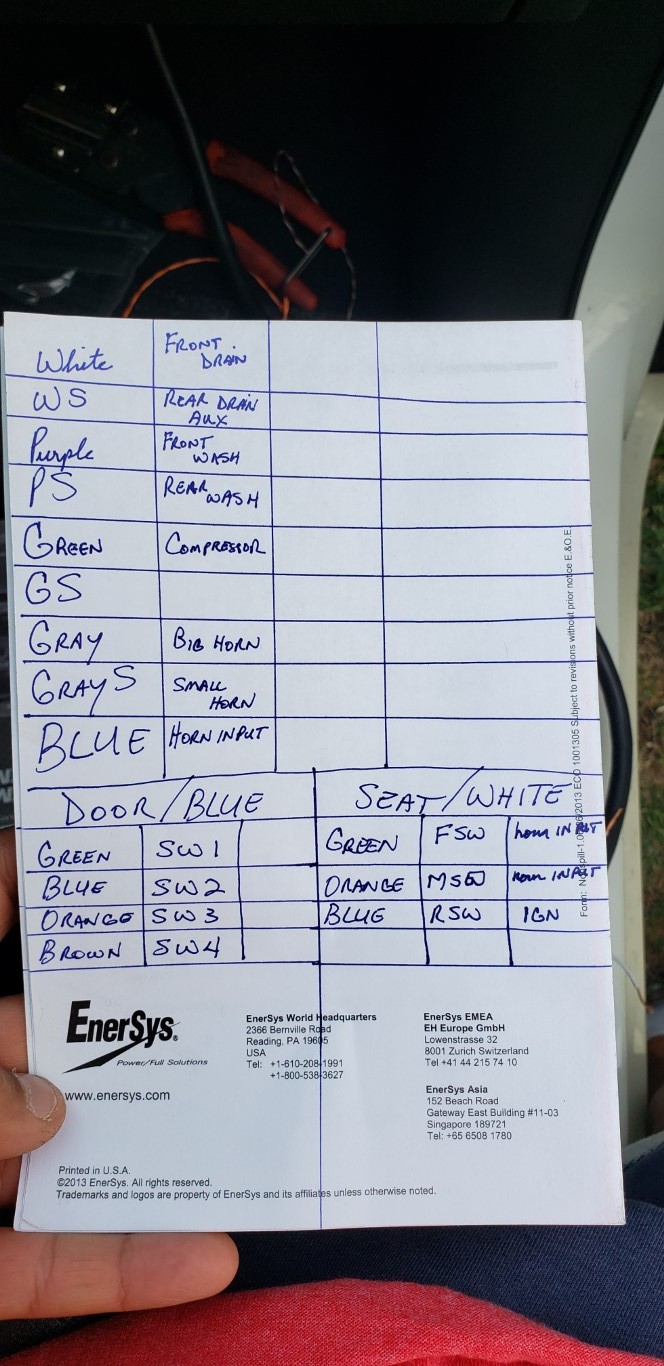 White FRONT.
DRAIN
WS REAR DRAIN
AUX
Purple FRONT
WASH
PS REAR
WASH
GREEN COMPRESSOR
GS
GRAY BIG HORN
GRAY S SMALL
HORN
BLUE HORN INPUT
DOOR/BLUE SEAT/WHITE
GREEN SW1 GREEN FSW horn INPUT
BLUE SW2 ORANGE MSW horn INPUT
ORANGE SW3 BLUE RSW IGN
BROWN SW4
EnerSys®
Power/Full Solutions
www.enersys.com
EnerSys World Headquarters
2366 Bernville Road
Reading, PA 19605
USA
Tel: +1-610-208-1991
+1-800-538-3627
EnerSys EMEA
EH Europe GmbH
Lowenstrasse 32
8001 Zurich Switzerland
Tel +41 44 215 74 10
EnerSys Asia
152 Beach Road
Gateway East Building #11-03
Singapore 189721
Tel: +65 6508 1780
Printed in U.S.A.
©2013 EnerSys. All rights reserved.
Trademarks and logos are property of EnerSys and its affiliates unless otherwise noted.
2013 ECO 1001305 Subject to revisions without prior notice E.&O.E.